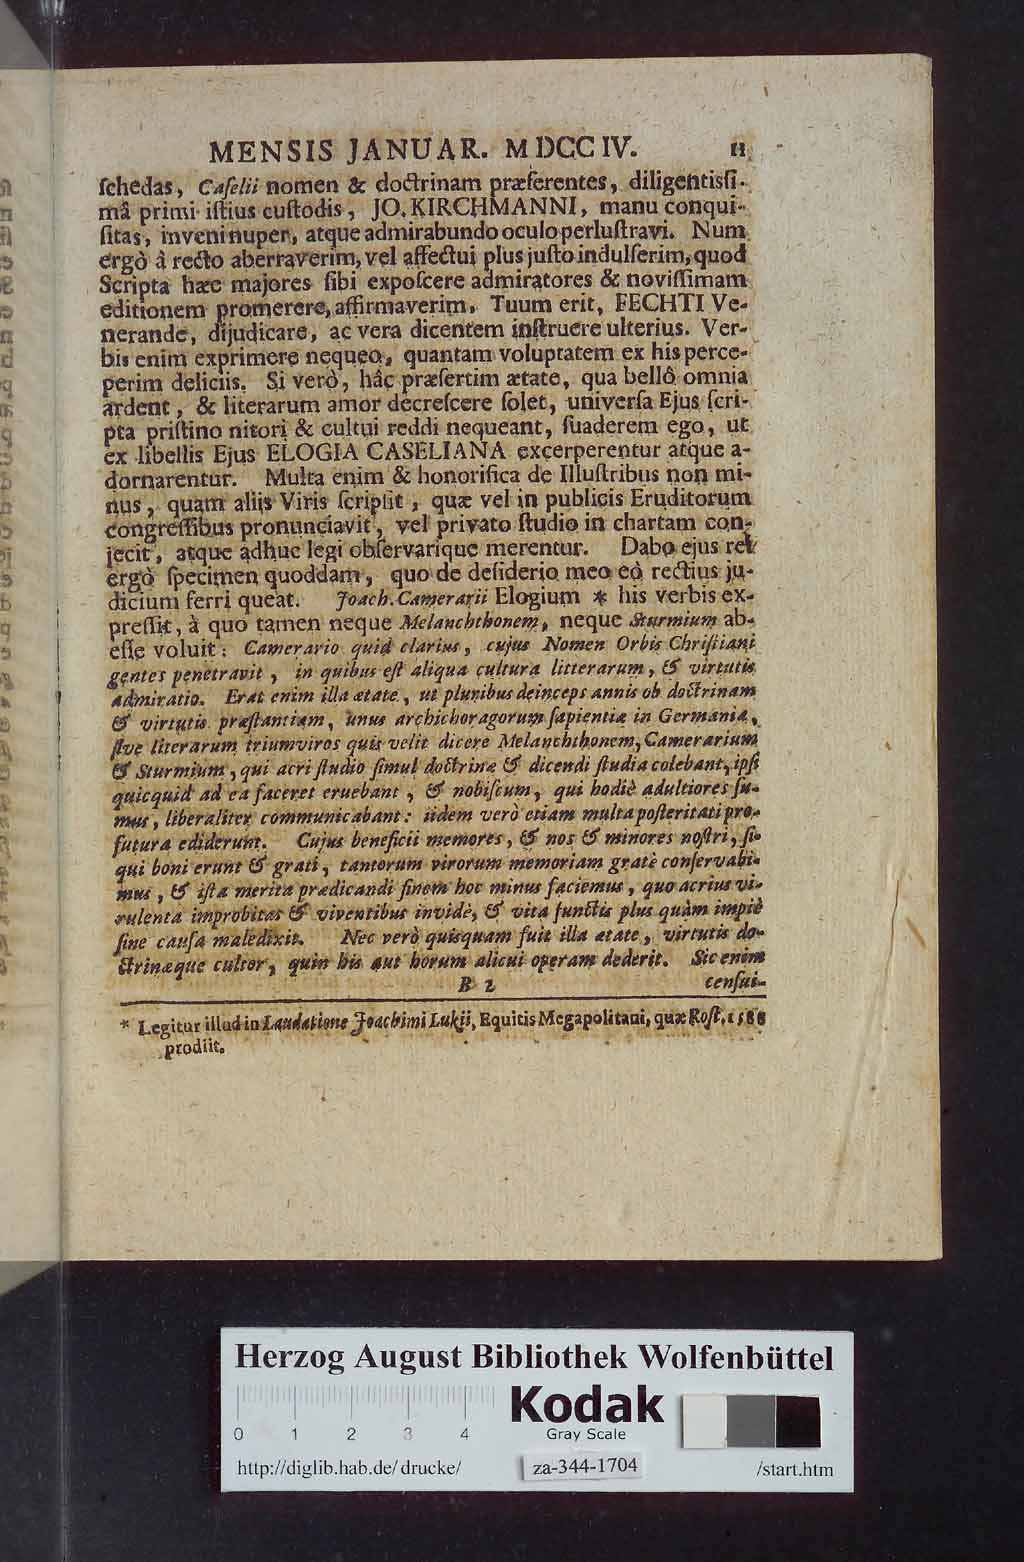 MENSIS JANUAR. MDCCIV. 11
ſchedas, Caſelii nomen & doctrinam præferentes, diligentiſſi-
mâ primi iſtius cuſtodis, JO. KIRCHMANNI, manu conqui-
ſitas, inveni nuper, atque admirabundo oculo perluſtravi. Num
ergò à recto aberraverim, vel affectui plus juſto indulſerim, quod
Scripta hæc majores ſibi expoſcere admiratores & noviſſimam
editionem promerere, affirmaverim. Tuum erit, FECHTI Ve-
nerande, dijudicare, ac vera dicentem inſtruere ulterius. Ver-
bis enim exprimere nequeo, quantam voluptatem ex his perce-
perim deliciis. Si verò, hâc præſertim ætate, qua bellô omnia
ardent, & literarum amor decreſcere ſolet, univerſa Ejus ſcri-
pta priſtino nitori & cultui reddi nequeant, ſuaderem ego, ut
ex libellis Ejus ELOGIA CASELIANA excerperentur atque a-
dornarentur. Multa enim & honorifica de Illuſtribus non mi-
nus, quam aliis Viris ſcripſit, quæ vel in publicis Eruditorum
congreſſibus pronunciavit, vel privato ſtudio in chartam con-
jecit, atque adhuc legi obſervarique merentur. Dabo ejus rei
ergò ſpecimen quoddam, quo de deſiderio meo eò rectius ju-
dicium ferri queat. Joach. Camerarii Elogium * his verbis ex-
preſſit, à quo tamen neque Melanchthonem, neque Sturmium ab-
eſſe voluit: Camerario quid clarius, cujus Nomen Orbis Chriſtiani
gentes penetravit, in quibus eſt aliqua cultura litterarum, & virtutis
admiratio. Erat enim illa ætate, ut pluribus deinceps annis ob doctrinam
& virtutis præſtantiam, unus archichoragorum ſapientiæ in Germania,
ſive literarum triumviros quis velit dicere Melanchthonem, Camerarium
& Sturmium, qui acri ſtudio ſimul doctrinæ & dicendi ſtudia colebant, ipſi
quicquid ad ea faceret eruebant, & nobiſcum, qui hodiè adultiores ſu-
mus, liberaliter communicabant: iidem verò etiam multa poſteritati pro-
futura ediderunt. Cujus beneficii memores, & nos & minores noſtri, ſi-
qui boni erunt & grati, tantorum virorum memoriam gratè conſervabi-
mus, & iſta merita prædicandi finem hoc minus faciemus, quo acrius vi-
rulenta improbitas & viventibus invidè, & vita functis plus quàm impiè
ſine cauſa maledixit. Nec verò quisquam fuit illa ætate, virtutis do-
ctrinæque cultor, quin his aut horum alicui operam dederit. Sic enim
B 2 cenſui-
* Legitur illud in Laudatione Joachimi Lukii, Equitis Megapolitani, quæ Roſt. 1588
prodiit.
Herzog August Bibliothek Wolfenbüttel
Kodak
Gray Scale
0 1 2 3 4
http://diglib.hab.de/drucke/ za-344-1704 /start.htm